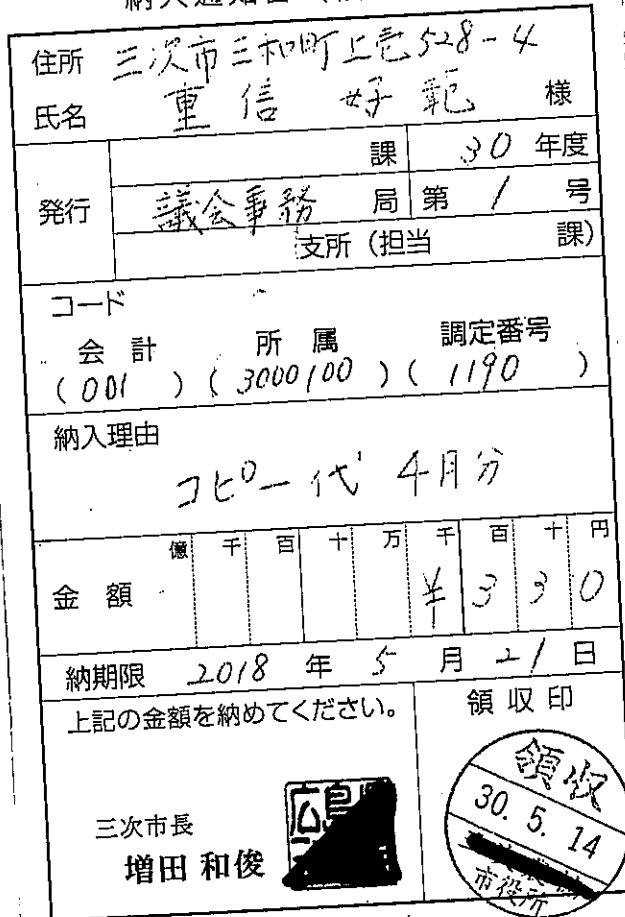 住所 三次市三和町上壱528-4
氏名 重信 好範 様
発行
課 30年度
議会事務局 第 1 号
支所(担当 課)
コード
会計 所属 調定番号
(001) (3000100) (1190)
納入理由
コピー代 4月分
億 千 百 十 万 千 百 十 円
金額 ¥330
納期限 2018年5月21日
上記の金額を納めてください。
領収印
三次市長
増田 和俊
広島
領収
30. 5. 14
市役所